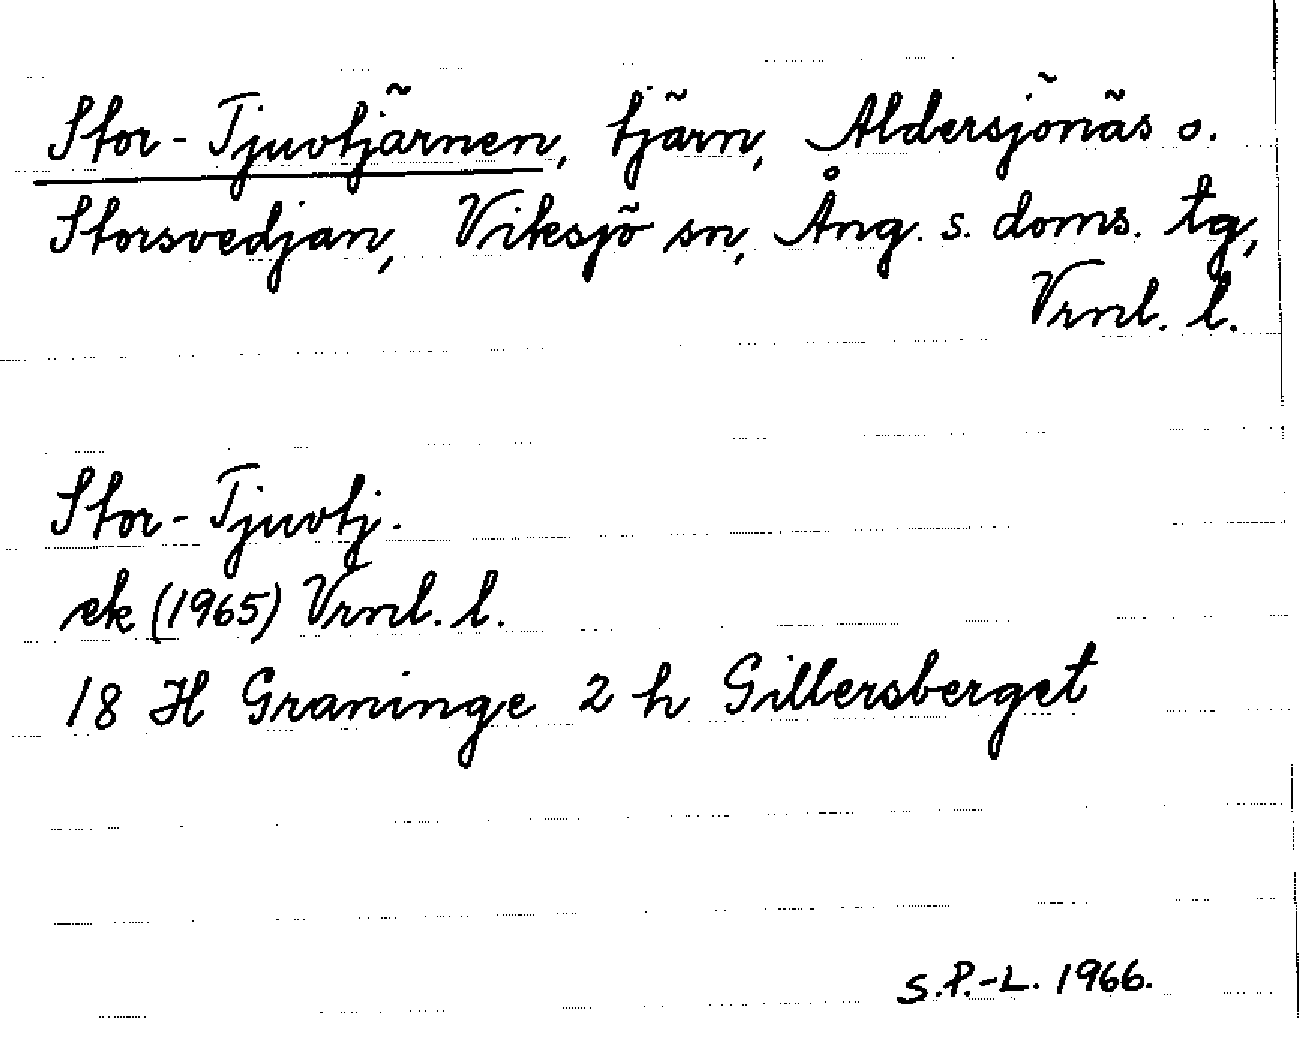 Stor-Tjuvtjärnen, tjärn, Aldersjönäs o.
Storsvedjan, Viksjö sn, Ång. s. doms. tg,
Vrnl. l.
Stor-Tjuvtj.
ek (1965) Vrnl. l.
18 H Graninge 2 h Gillersberget
S.P.-L. 1966.